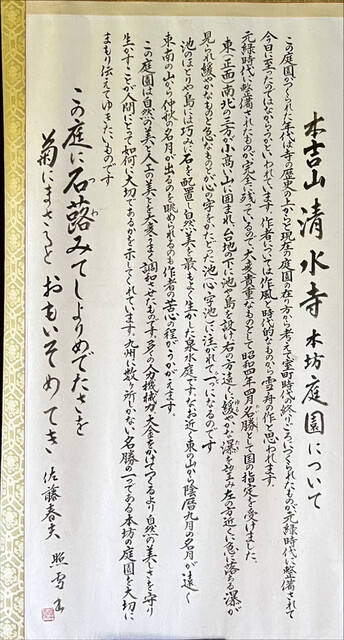 本吉山清水寺本坊庭園について
この庭園がつくられた年代は寺の歴史の上からと現在の庭園の在り方から考えて室町時代の終りごろにつくられたものが元禄時代に整備されて
今日に至ったのではなからうかといわれています。作者については作風と時代的なものから雪舟の作と思われます。
元禄時代に整備されたものが完全に残っているので大変貴重なものとして昭和四年四月名勝として国の指定を受けました。
東の正面と南北の三方の小高い山に囲まれた台地の下に池や島を設け右の方遠くに緩やかな瀑を望み左の方近くに急に落ちる瀑が
見られ緩やかなものと急なものとが心の字をかたどった池心字池に注がれて一つになるのです
池のほとりや島には巧みに石を配置し自然の美を最もよく生かした泉水庭です。なお近く東の山から陰暦九月の名月が遠く
東南の山から仲秋の名月が出るのを眺められるのも作者の苦心の程がうかがえます。
この庭園は自然の美と人工の美とを大変うまく調和させたものです。多くの人力機械力大金をかけてつくるより自然の美しさを守り
生かすことが人間にとって如何に大切であるかを示してくれています。九州に数ヶ所しかない名勝の一つである本坊の庭園を大切に
まもり伝えてゆきたいものです
この庭に石蕗みてしよりめでたさを
つわ
菊にまさると おもいそめてき 佐藤春夫 照雪